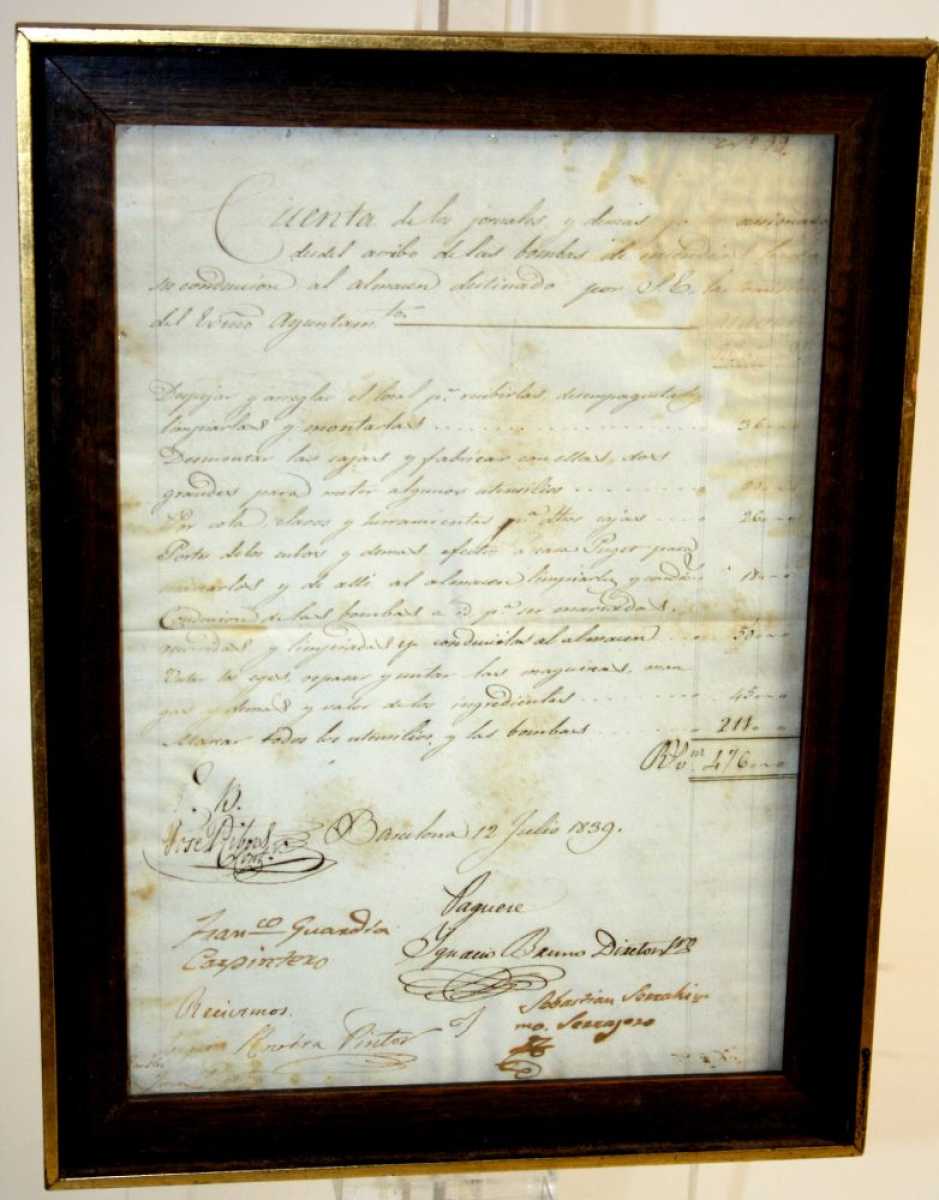 Cuenta de los jornales y demas ocasionado
desdel arribo de las bombas de incendio
su conduccion al almacen destinado por S.E.
del Exmo Ayuntamto.
Despejar y arreglar el local pa. recibirlas, desempaquetarlas
limpiarlas y montarlas 36
Desmontar las cajas y fabricar con ellas, dos
grandes para meter algunos utensilios
Por cola, clavos y herramientas pa. dhas cajas 26
Portes de los cubos y demas efectos a casa Puget para
marcarlos y de alli al almacen limpiarlos y 18
Conduccion de las bombas a id pa. ser marcadas,
y limpiadas y conducirlas al almacen
Untar los eges, repasar y untar las maquinas, man
gas y demas y valor de los ingredientes 45
Marcar todos los utensilios, y las bombas 211
Rs. vn. 476
V. B.
Jose Ribas
Barcelona 12 Julio 1839.
Paguese
Franco Guardia
Carpintero
Ygnacio Bruno Diretor
Recivimos.
Pintor
Sebastian
Serrajero